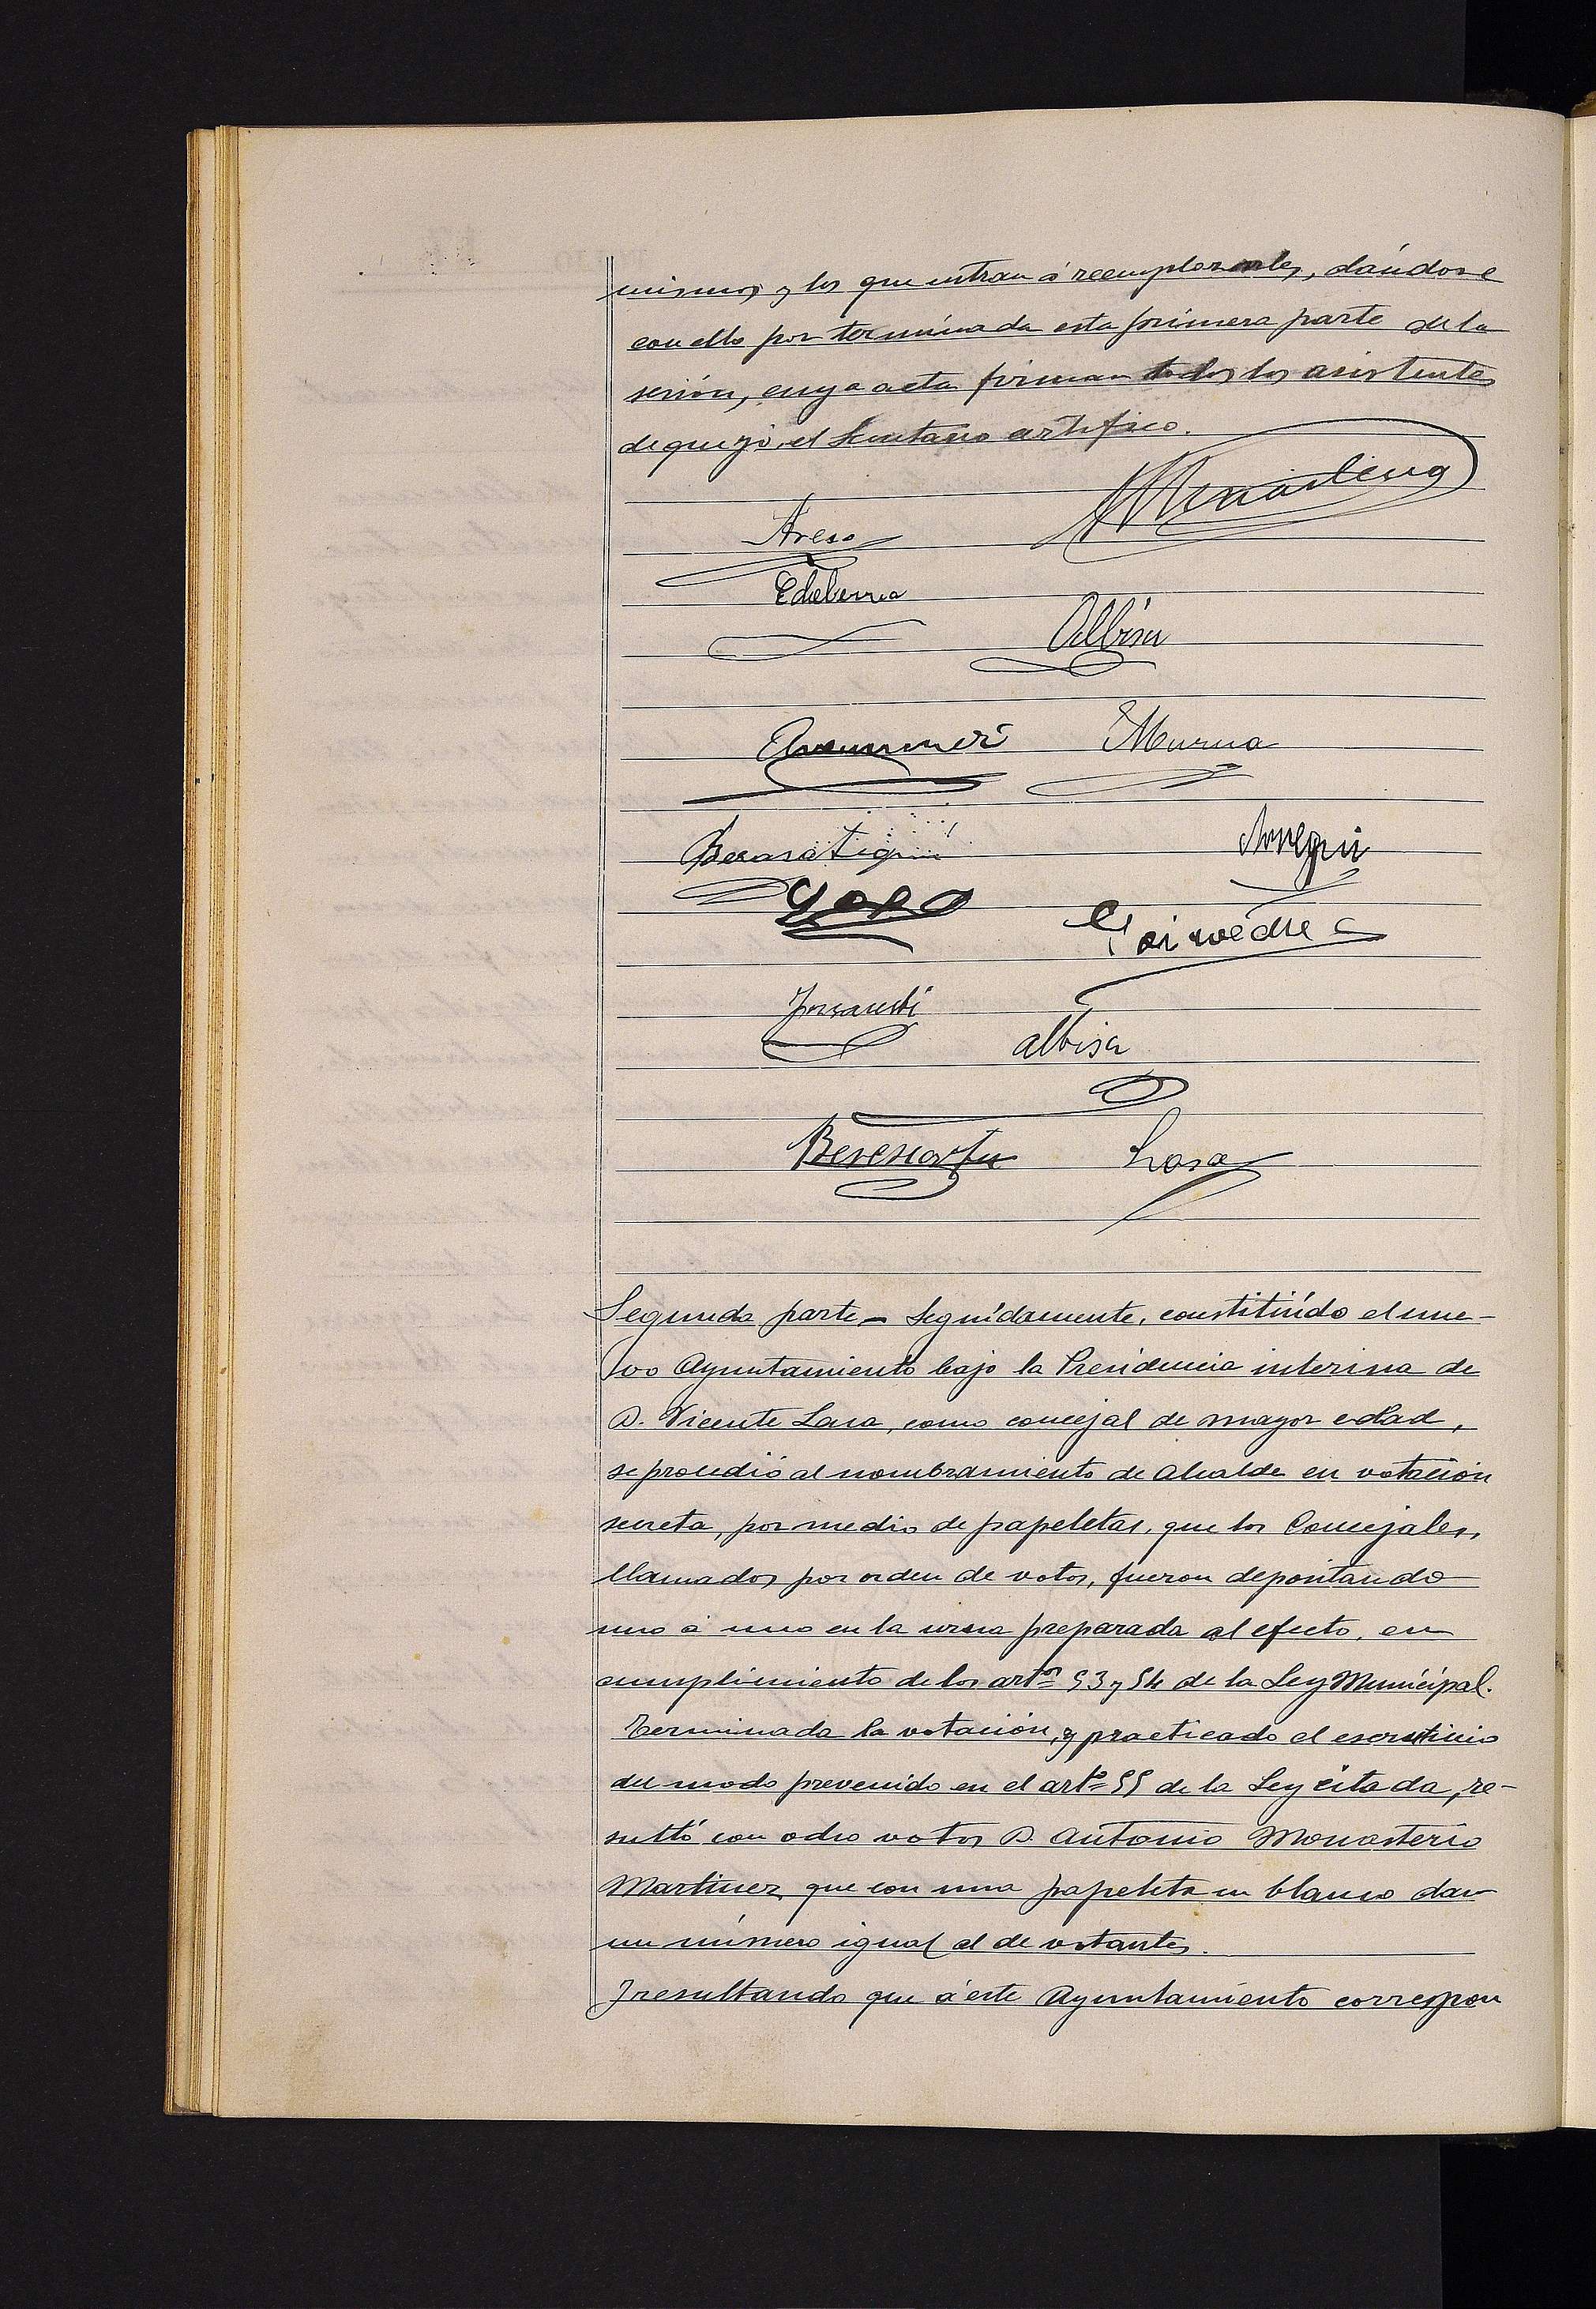 mismos y los que entran á reemplazarles, dándose
con ello por terminada esta primera parte de la
sesión, cuya acta firman todos los asistentes
de que yo, el Secretario certifico.
Areso
Echeberria
Albisu
Murua
Berasategui
Arregui
Goicoechea
Albisu
Lasa
Segunda parte - Seguidamente, constituído el nue-
vo Ayuntamiento bajo la Presidencia interina de
D. Vicente Lasa, como concejal de mayor edad,
se procedió al nombramiento de Alcalde en votación
secreta, por medio de papeletas, que los Concejales,
llamados por orden de votos, fueron depositando
uno á uno en la urna preparada al efecto, en
cumplimiento de los artos 53 y 54 de la Ley Municipal.
Terminada la votación, y practicado el escrutinio
del modo prevenido en el arto 55 de la Ley citada, re-
sultó con ocho votos D. Antonio Monasterio
Martinez, que con una papeleta en blanco dan
un número igual al de votantes.
Y resultando que á este Ayuntamiento correspon